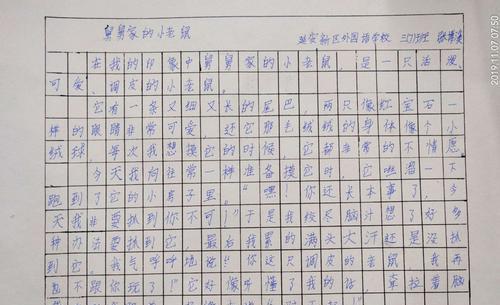 舅舅家的小老鼠
延安新区外国语学校 三(7)班
2019.11.07 07:50
在我的印象中舅舅家的小老鼠,是一只活泼、
可爱、调皮的小老鼠。
它有一条又细又长的尾巴,两只像红宝石一
样的眼睛非常可爱,还它那毛绒绒的身体像个小
绒球,每次我想摸它的时候,它都非常的不情愿
今天我向往常一种准备摸它时,它嗖溜一下
跑到了它的小房子里。"嘿!你还长本事了,今
天我非要抓到你不可!"于是我绞尽脑汁想了好多
种办法要抓到它,最后我累的满头大汗还是没抓
到它,我气呼呼地说"你这只调皮的老鼠,我再
也不跟你玩了!"它好像听懂了我的话,牵拉着脑